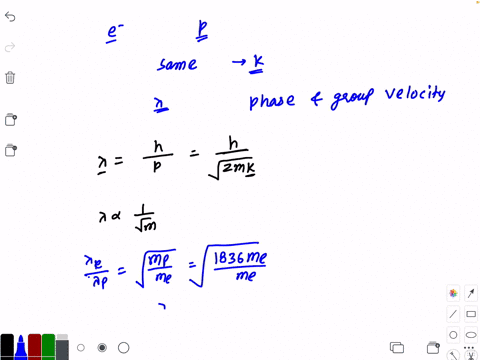 e⁻ p
same → k
λ phase & group velocity
λ = h/p = h/√(2mk)
λ ∝ 1/√m
λe/λp = √(mp/me) = √(1836me/me)